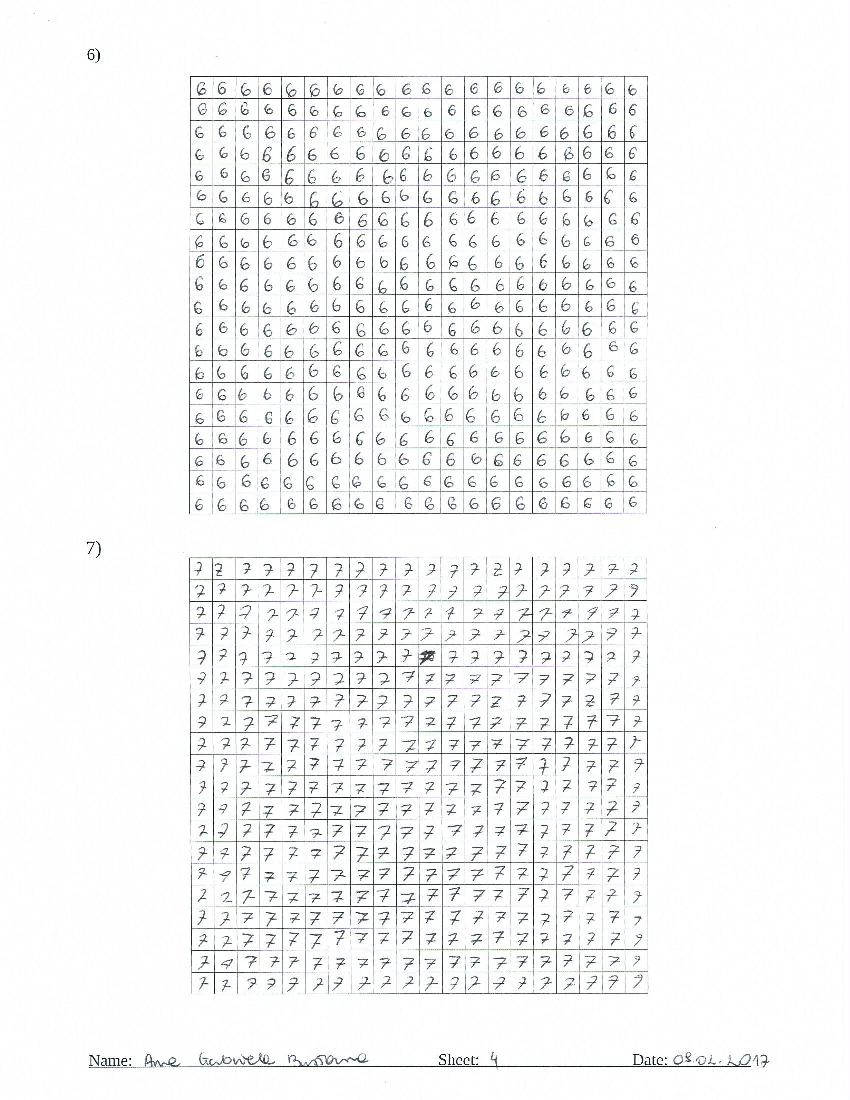 6)
6 6 6 6 6 6 6 6 6 6 6 6 6 6 6 6 6 6 6 6
6 6 6 6 6 6 6 6 6 6 6 6 6 6 6 6 6 6 6 6
6 6 6 6 6 6 6 6 6 6 6 6 6 6 6 6 6 6 6 6
6 6 6 6 6 6 6 6 6 6 6 6 6 6 6 6 6 6 6 6
6 6 6 6 6 6 6 6 6 6 6 6 6 6 6 6 6 6 6 6
6 6 6 6 6 6 6 6 6 6 6 6 6 6 6 6 6 6 6 6
6 6 6 6 6 6 6 6 6 6 6 6 6 6 6 6 6 6 6 6
6 6 6 6 6 6 6 6 6 6 6 6 6 6 6 6 6 6 6 6
6 6 6 6 6 6 6 6 6 6 6 6 6 6 6 6 6 6 6 6
6 6 6 6 6 6 6 6 6 6 6 6 6 6 6 6 6 6 6 6
6 6 6 6 6 6 6 6 6 6 6 6 6 6 6 6 6 6 6 6
6 6 6 6 6 6 6 6 6 6 6 6 6 6 6 6 6 6 6 6
6 6 6 6 6 6 6 6 6 6 6 6 6 6 6 6 6 6 6 6
6 6 6 6 6 6 6 6 6 6 6 6 6 6 6 6 6 6 6 6
6 6 6 6 6 6 6 6 6 6 6 6 6 6 6 6 6 6 6 6
6 6 6 6 6 6 6 6 6 6 6 6 6 6 6 6 6 6 6 6
6 6 6 6 6 6 6 6 6 6 6 6 6 6 6 6 6 6 6 6
6 6 6 6 6 6 6 6 6 6 6 6 6 6 6 6 6 6 6 6
6 6 6 6 6 6 6 6 6 6 6 6 6 6 6 6 6 6 6 6
6 6 6 6 6 6 6 6 6 6 6 6 6 6 6 6 6 6 6 6
7)
7 7 7 7 7 7 7 7 7 7 7 7 7 7 7 7 7 7 7 7
7 7 7 7 7 7 7 7 7 7 7 7 7 7 7 7 7 7 7 7
7 7 7 7 7 7 7 7 7 7 7 7 7 7 7 7 7 7 7 7
7 7 7 7 7 7 7 7 7 7 7 7 7 7 7 7 7 7 7 7
7 7 7 7 7 7 7 7 7 7 7 7 7 7 7 7 7 7 7
7 7 7 7 7 7 7 7 7 7 7 7 7 7 7 7 7 7 7 7
7 7 7 7 7 7 7 7 7 7 7 7 7 7 7 7 7 7 7 7
7 7 7 7 7 7 7 7 7 7 7 7 7 7 7 7 7 7 7 7
7 7 7 7 7 7 7 7 7 7 7 7 7 7 7 7 7 7 7 7
7 7 7 7 7 7 7 7 7 7 7 7 7 7 7 7 7 7 7 7
7 7 7 7 7 7 7 7 7 7 7 7 7 7 7 7 7 7 7 7
7 7 7 7 7 7 7 7 7 7 7 7 7 7 7 7 7 7 7 7
7 7 7 7 7 7 7 7 7 7 7 7 7 7 7 7 7 7 7 7
7 7 7 7 7 7 7 7 7 7 7 7 7 7 7 7 7 7 7 7
7 7 7 7 7 7 7 7 7 7 7 7 7 7 7 7 7 7 7 7
7 7 7 7 7 7 7 7 7 7 7 7 7 7 7 7 7 7 7 7
7 7 7 7 7 7 7 7 7 7 7 7 7 7 7 7 7 7 7 7
7 7 7 7 7 7 7 7 7 7 7 7 7 7 7 7 7 7 7 7
7 7 7 7 7 7 7 7 7 7 7 7 7 7 7 7 7 7 7 7
7 7 7 7 7 7 7 7 7 7 7 7 7 7 7 7 7 7 7 7
Name: Gabriela Sheet: 4 Date: 08.02.2017